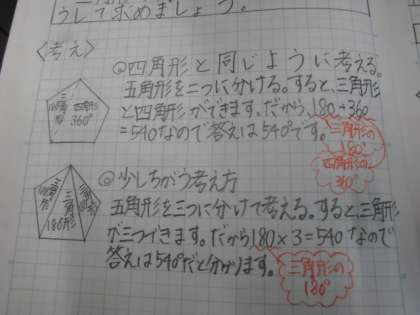 うして求めましょう。
〈考え〉
@四角形と同じように考える。
五角形を二つに分ける。すると、三角形
と四角形ができます。だから、180+360
=540なので答えは540°です。
三角形の
180°
四角形の
360°
四角形
360°
@少しちがう考え方
五角形を三つに分けて考える。すると、三角形
が三つできます。だから180×3=540なので
答えは540°だと分かります。
三角形の
180°
三角形
180°